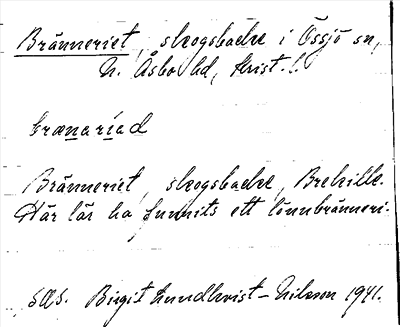 Bränneriet, skogsbacke i Össjö sn,
N. Åsbo hd, Krist. l.
brænariad
Bränneriet, skogsbacke, Brekille.
Här lär ha funnits ett lönnbränneri.
Birgit Lundkvist-Nilsson 1941.